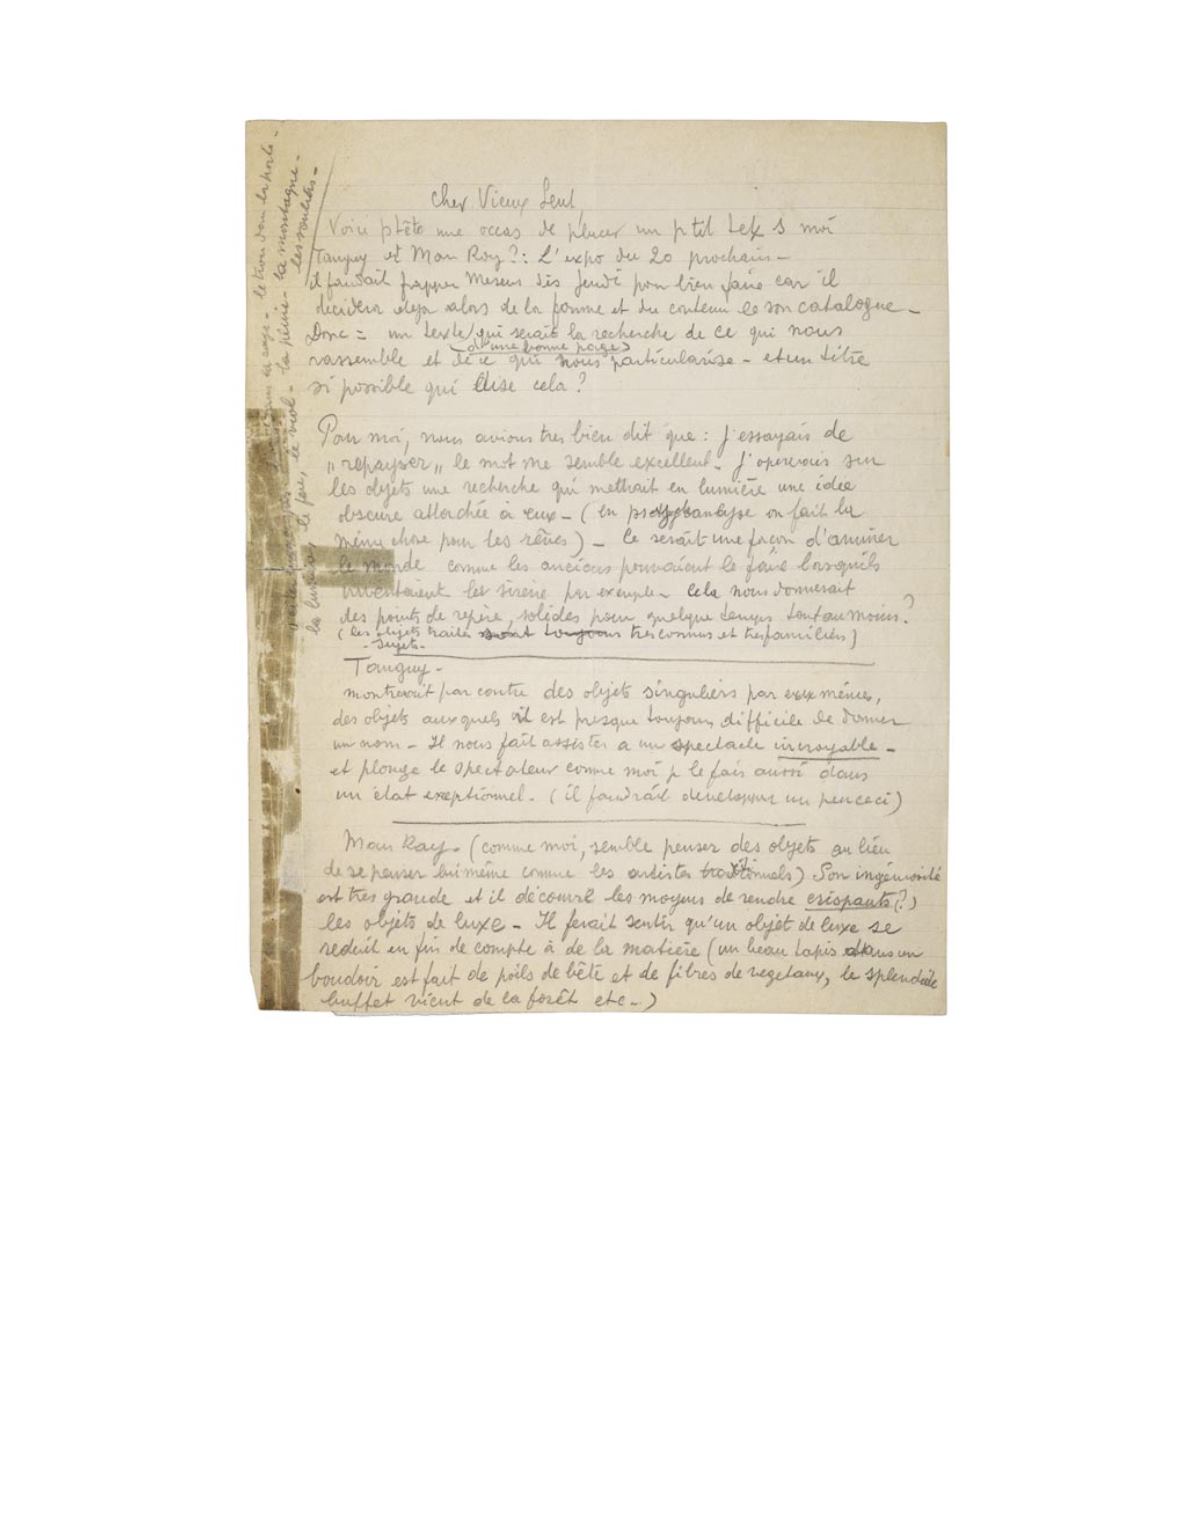 Cher Vieux
Voici ptête une occas de placer un ptit text s moi
Tanguy et Man Ray?: L'expo du 20 prochain -
il faudrait frapper Mesens dès jeudi pour bien faire car il
décidera déja alors de la forme et du contenu de son catalogue -
Donc = un texte qui serait la recherche de ce qui nous
(d'une bonne page)
rassemble et de ce qui nous particularise - et un titre
si possible qui dise cela ?
Pour moi, nous avions tres bien dit que : J'essayais de
"repayser" le mot me semble excellent. J'opererais sur
les objets une recherche qui mettrait en lumière une idée
obscure attachée à eux - (en psychanalyse on fait la
même chose pour les rêves) - Ce serait une façon d'animer
le monde comme les anciens pouvaient le faire lorsqu'ils
inventaient les sirène par exemple - Cela nous donnerait
des points de repère, solides pour quelque temps tout au moins.?
(les objets traités sont toujours tres connus et tres familiers)
- sujets -
Tanguy -
montrerait par contre des objets singuliers par eux mêmes,
des objets auxquels il est presque toujours difficile de donner
un nom - Il nous fait assister a un spectacle incroyable -
et plonge le spectateur comme moi je le fais aussi dans
un état exeptionnel. (il faudrait developper un peu ceci)
Man Ray - (comme moi, semble penser des objets au lieu
de se penser lui même comme les artistes traditionnels) Son ingéniosité
est très grande et il découvre les moyens de rendre crispants (?)
les objets de luxe - Il ferait sentir qu'un objet de luxe se
reduit en fin de compte à de la matière (un beau tapis dans un
boudoir est fait de poils de bête et de fibres de vegetaux, le splendide
buffet vient de la forêt etc -)
le trou dans la porte -
la pluie - la montagne -
les souliers -
le feu, le viol -